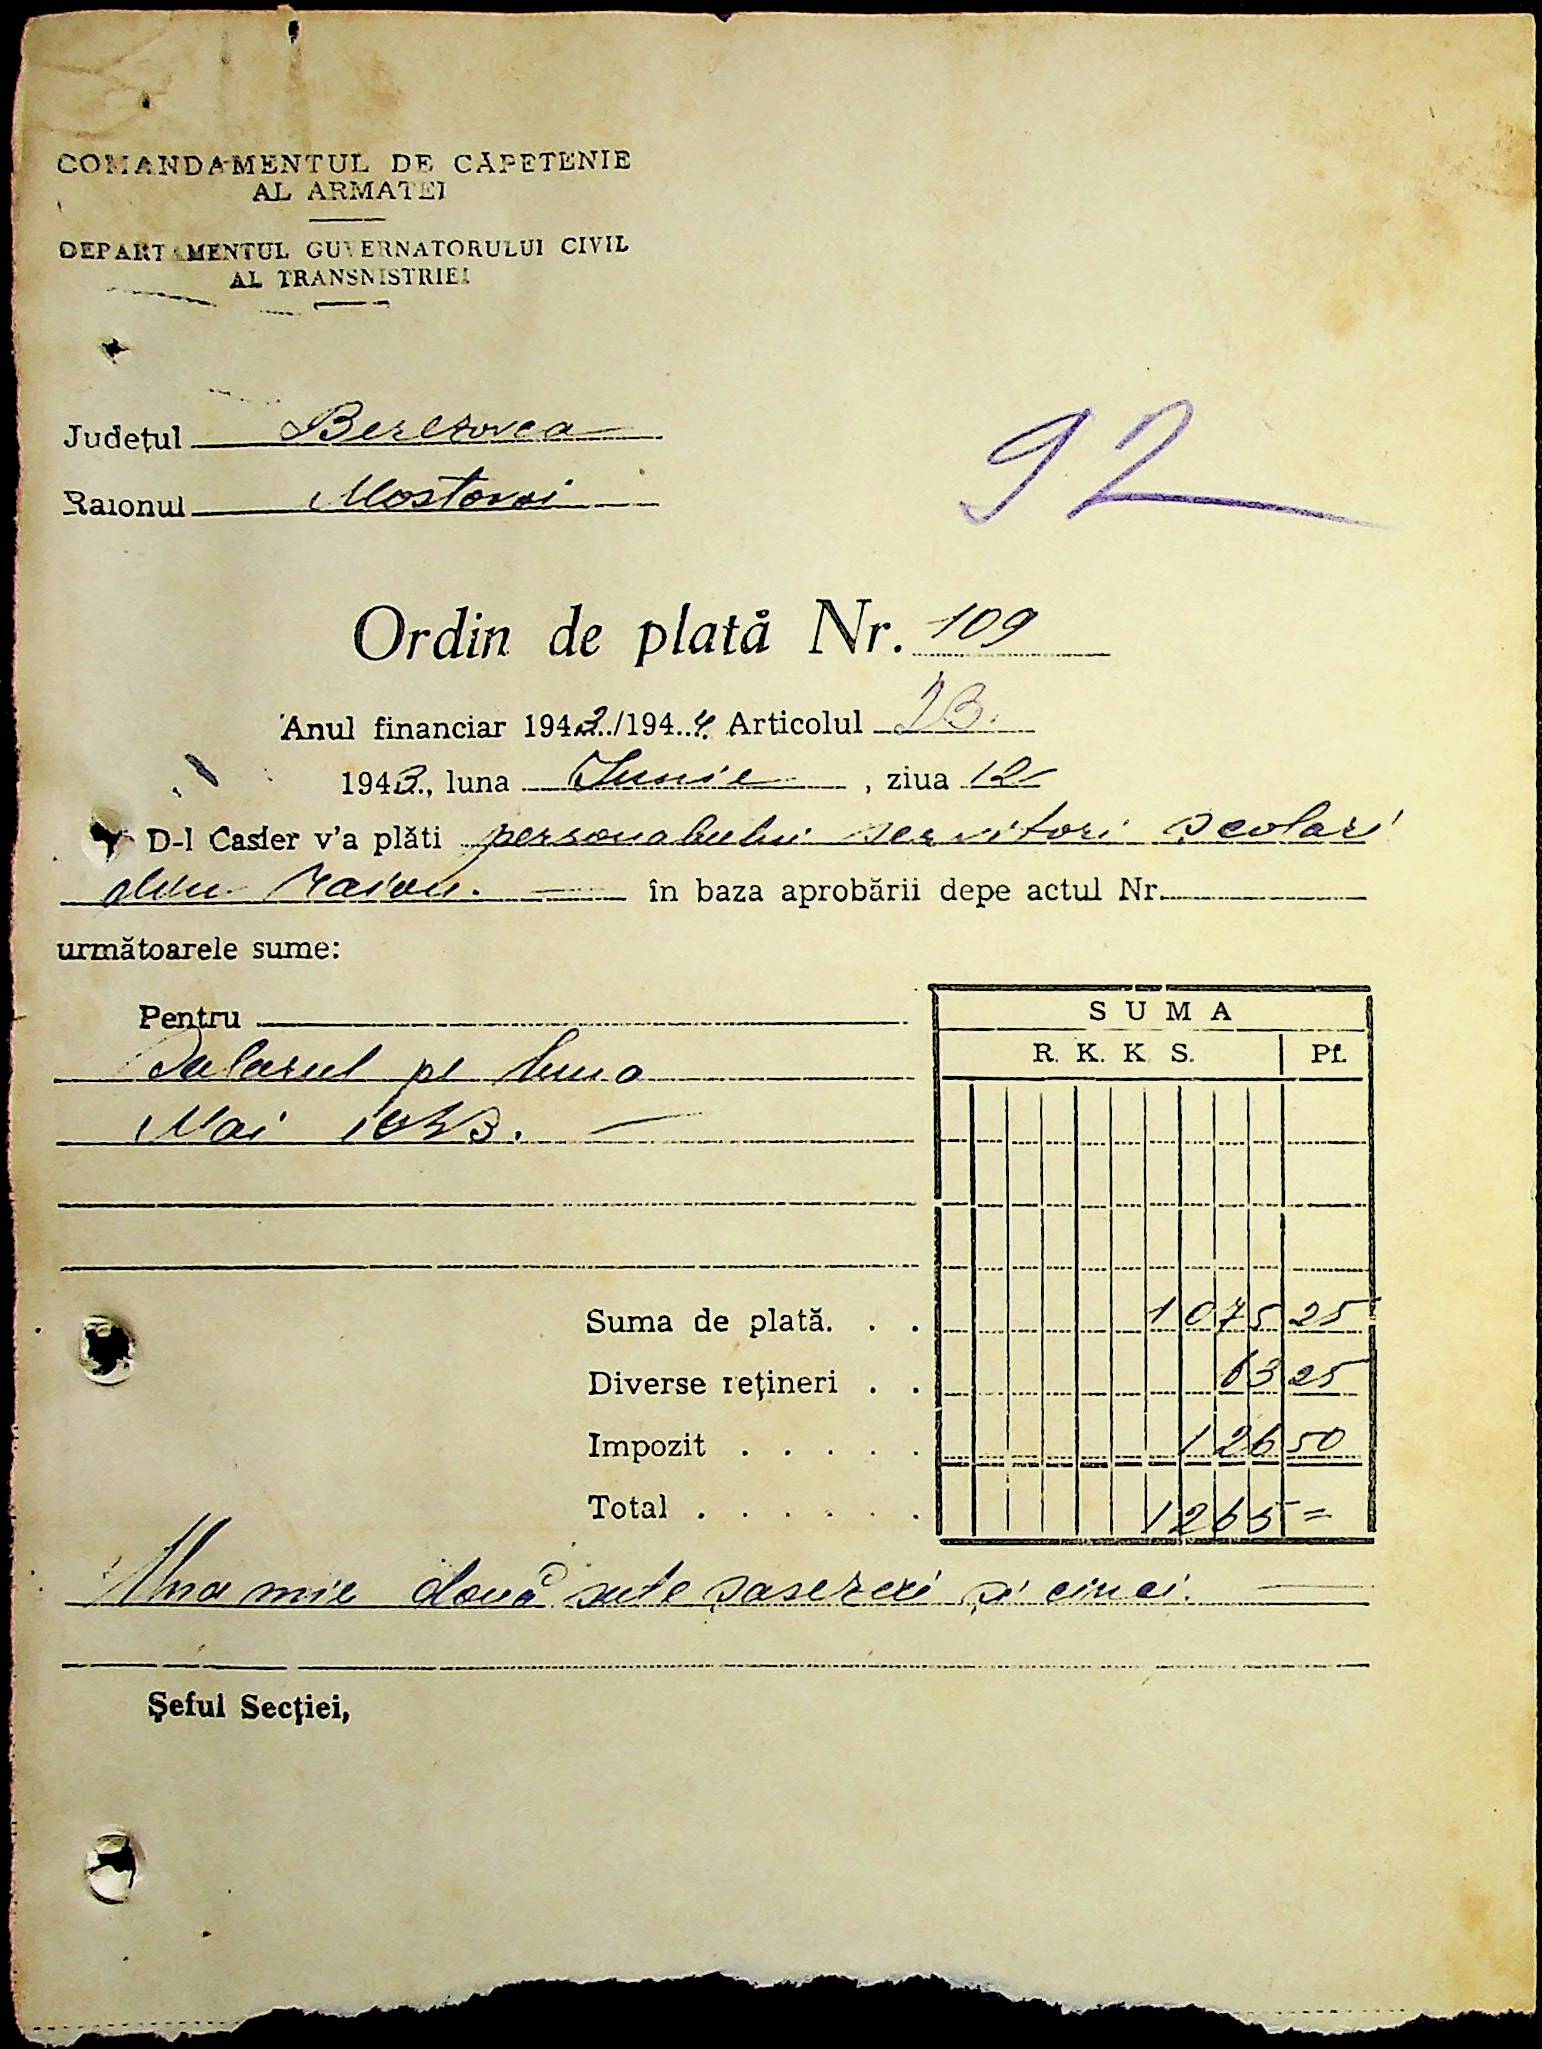 COMANDAMENTUL DE CAPETENIE
AL ARMATEI
DEPARTAMENTUL GUVERNATORULUI CIVIL
AL TRANSNISTRIEI
Județul Berezovca
Raionul Mostovoi
92
Ordin de plată Nr. 109
Anul financiar 1943./194..4. Articolul 23.
1943., luna Iunie, ziua 12
D-l Casier v'a plăti personalului servitori școlari
din raion. în baza aprobării depe actul Nr.
următoarele sume:
Pentru
Salarul pe luna
Mai 1943.
SUMA
R. K. K. S. Pf.
Suma de plată. . . 1075 25
Diverse rețineri . . 63 25
Impozit . . . . . 126 50
Total . . . . . . 1265 =
Una mie două sute șasezeci și cinci.
Șeful Secției,